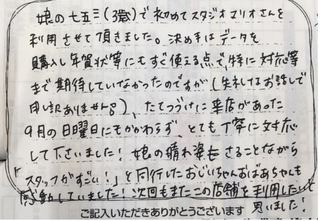 娘の七五三(3歳)で初めてスタジオマリオさんを
利用させて頂きました。決め手はデータを
購入し年賀状等にもすぐ使える点で、特に対応等
まで期待していなかったのですが(失礼なお話しで
申し訳ありません)、たてつづけに来店があった
9月の日曜日にもかかわらず、とても丁寧に対応
して下さいました!娘の晴れ姿もさることながら
「スタッフがすごい!」と同行したおじいちゃんおばあちゃんも
感動していました!次回もまたこの店舗を利用したいと
思いました!
ご記入いただきありがとうございます